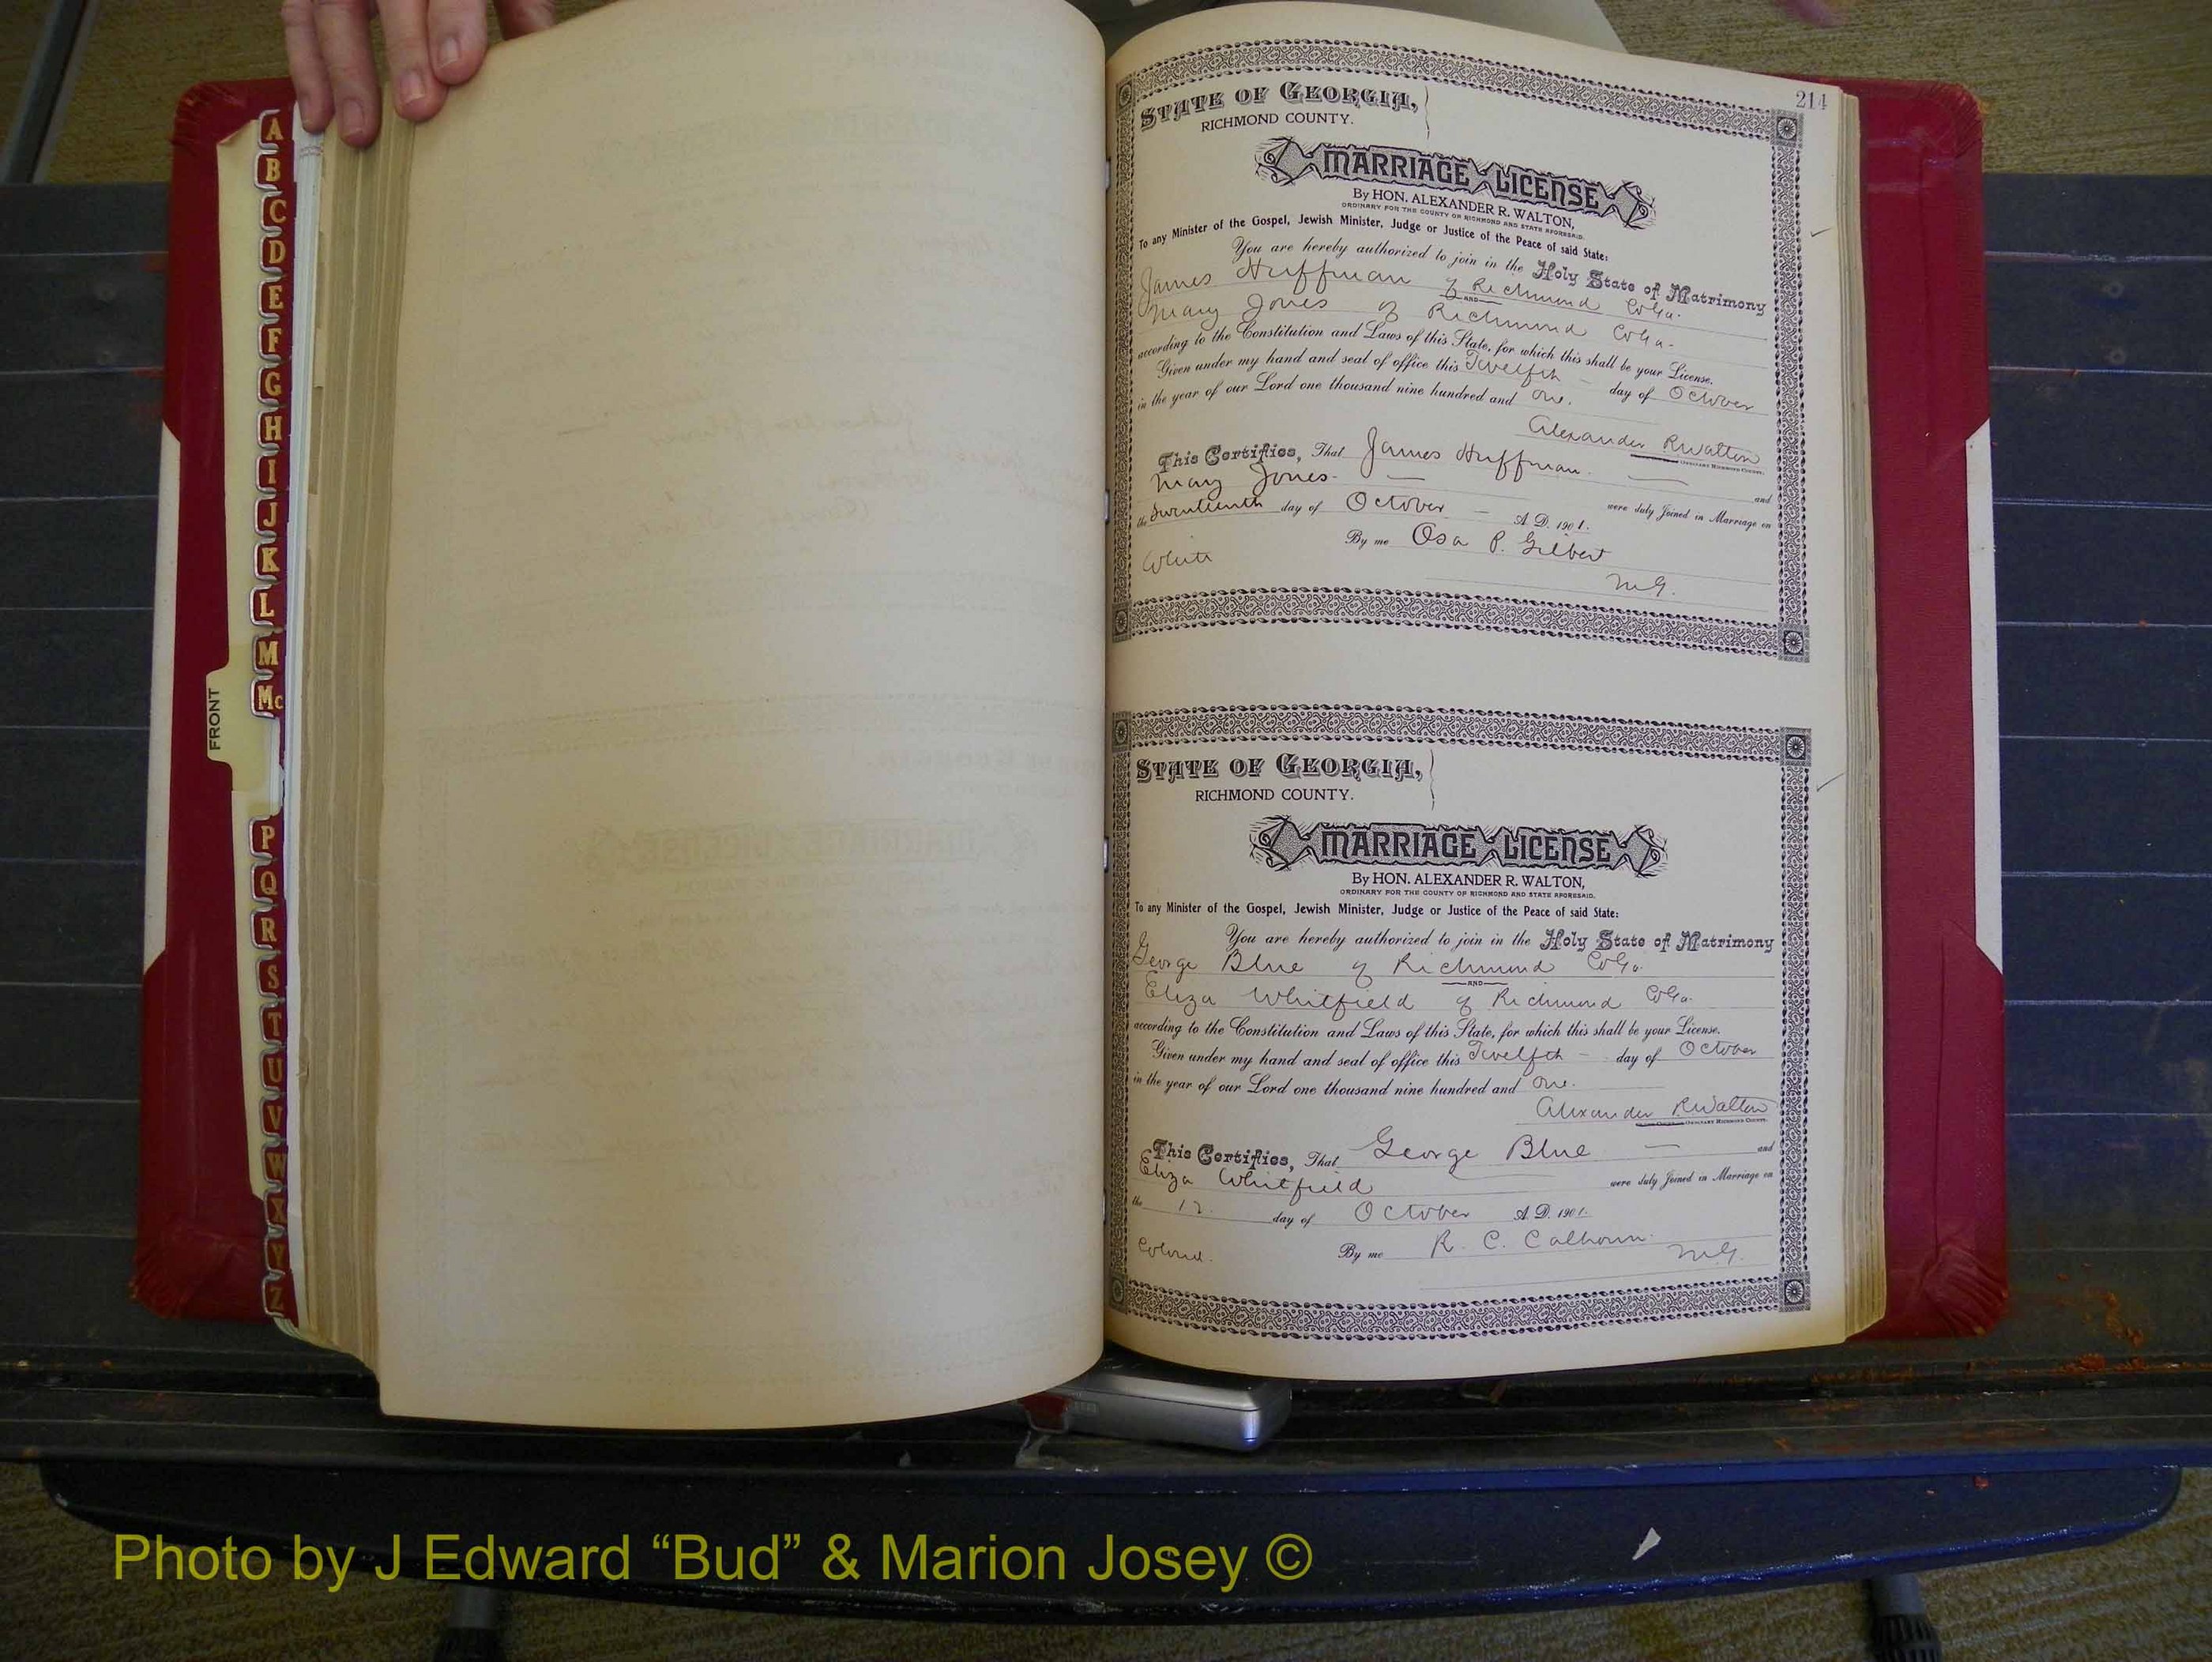 A
B
C
D
E
F
G
H
I
J
K
L
M
Mc
FRONT
P
Q
R
S
T
U
V
W
X
Y
Z
214
STATE OF GEORGIA,
RICHMOND COUNTY.
MARRIAGE LICENSE
By HON. ALEXANDER R. WALTON,
ORDINARY FOR THE COUNTY OF RICHMOND AND STATE AFORESAID.
To any Minister of the Gospel, Jewish Minister, Judge or Justice of the Peace of said State:
You are hereby authorized to join in the Holy State of Matrimony
James Huffman of Richmond Co Ga.
AND
Mary Jones of Richmond Co Ga-
according to the Constitution and Laws of this State, for which this shall be your License.
Given under my hand and seal of office this Twelfth - day of October
in the year of our Lord one thousand nine hundred and One.
Alexander R Walton
ORDINARY RICHMOND COUNTY.
This Certifies, That James Huffman. — and
Mary Jones. — were duly Joined in Marriage on
the Seventeenth day of October — A. D. 1901.
By me Osa P. Gilbert
White M.G.
STATE OF GEORGIA,
RICHMOND COUNTY.
MARRIAGE LICENSE
By HON. ALEXANDER R. WALTON,
ORDINARY FOR THE COUNTY OF RICHMOND AND STATE AFORESAID.
To any Minister of the Gospel, Jewish Minister, Judge or Justice of the Peace of said State:
You are hereby authorized to join in the Holy State of Matrimony
George Blue of Richmond Co Ga.
AND
Eliza Whitfield of Richmond Co Ga.
according to the Constitution and Laws of this State, for which this shall be your License.
Given under my hand and seal of office this Twelfth - day of October
in the year of our Lord one thousand nine hundred and One.
Alexander R Walton
ORDINARY RICHMOND COUNTY.
This Certifies, That George Blue — and
Eliza Whitfield were duly Joined in Marriage on
the day of October A. D. 1901.
Colored. By me R. C. Calhoun. M.G.
Photo by J Edward “Bud” & Marion Josey ©